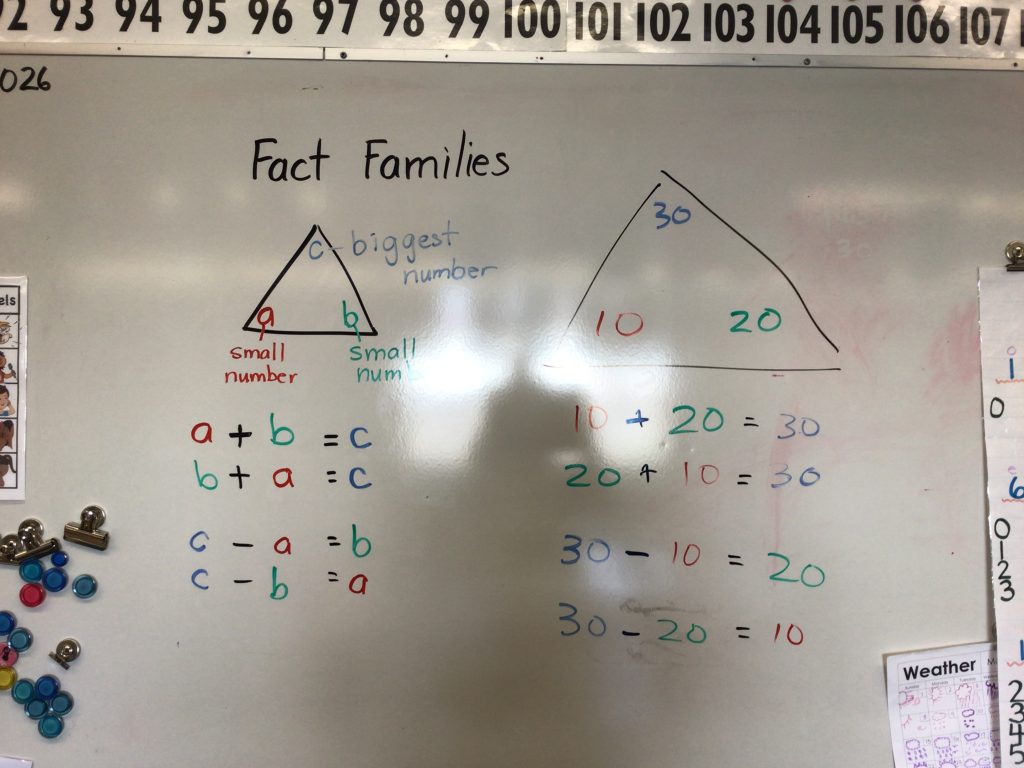 93 94 95 96 97 98 99 100 101 102 103 104 105 106 107
026
Fact Families
c - biggest
number
a b
small
number
small
a + b = c
b + a = c
c - a = b
c - b = a
30
10 20
10 + 20 = 30
20 + 10 = 30
30 - 10 = 20
30 - 20 = 10
els
1
0
6
0
1
2
3
1
2
3
4
5
Weather